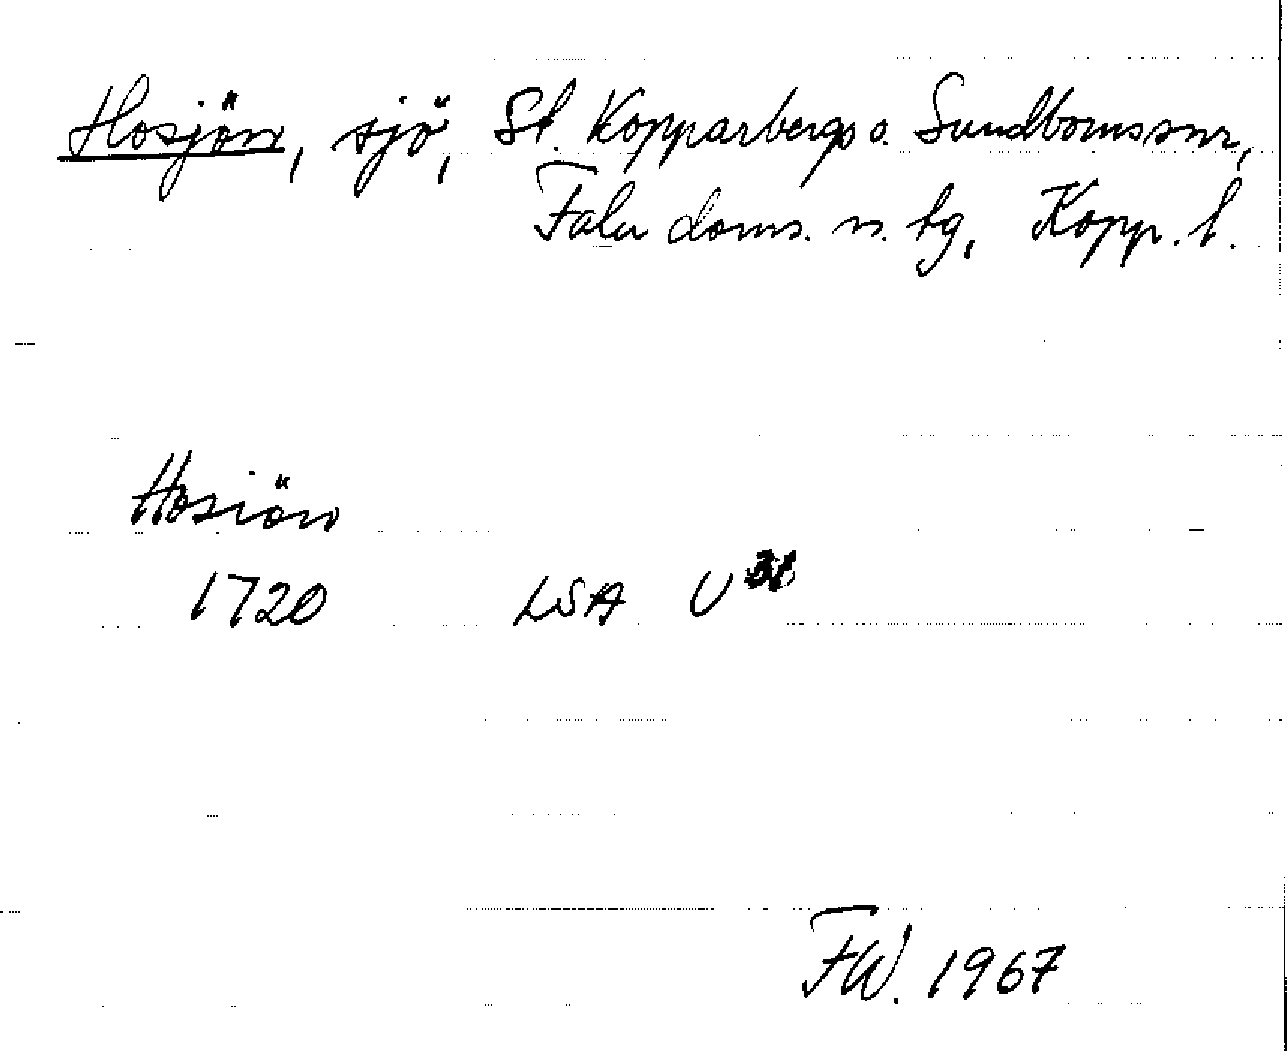 Hosjön, sjö, St. Kopparbergs o. Sundborns snr,
Falu doms. n. tg, Kopp. l.
Hosiön
1720 LSA U
F.W. 1967